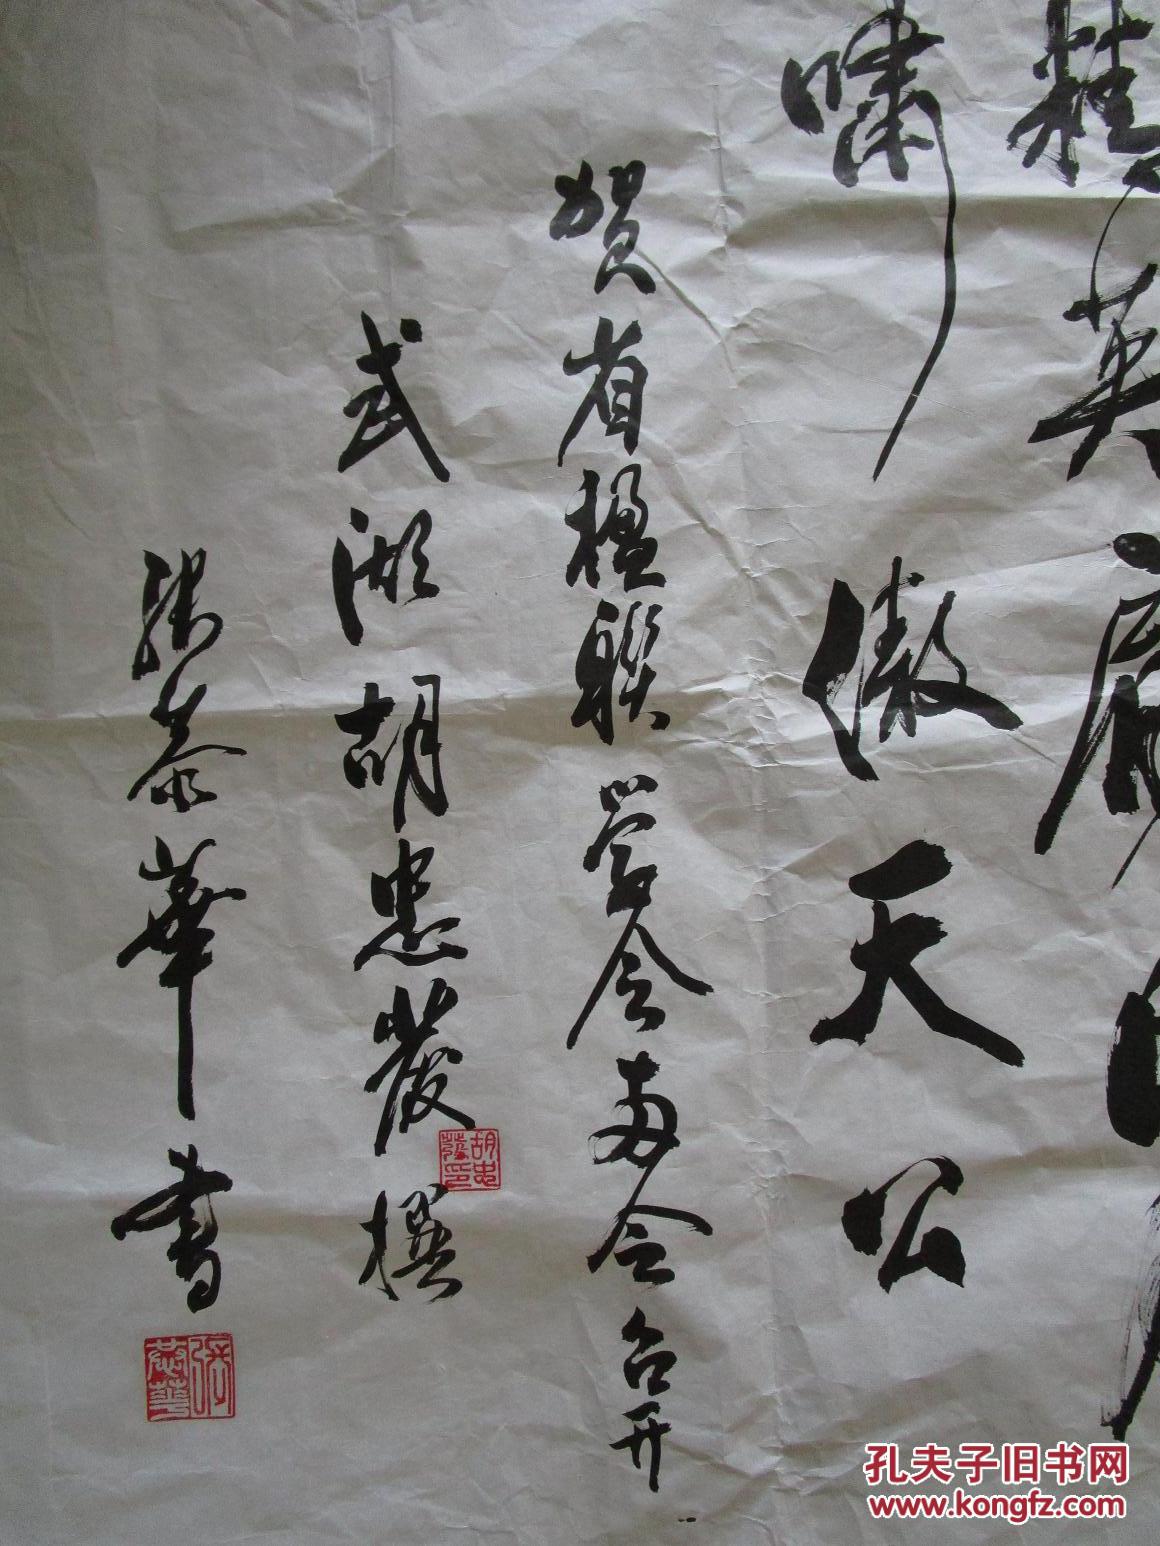 精英
啸傲天公
贺省楹联学会两会召开
武湖胡忠发撰
胡忠發印
張泰華書
孔夫子旧书网
www.kongfz.com